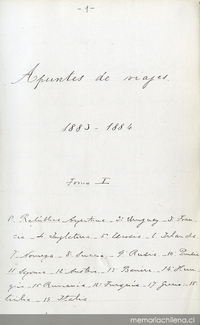 - 1 -
Apuntes de viajes.
1883 - 1884
Tomo I
1º República Arjentina - 2º Uruguay - 3º Fran-
cia - 4. Inglaterra - 5. Escocia - 6. Islanda
7. Noruega - 8. Suecia - 9. Rusia - 10.
11 - 12. Austria - 13. Baviera - 14. Hun-
gría - 15. Rumania - 16. Turquía - 17. Grecia - 18.
19. Italia
memoriachilena.cl